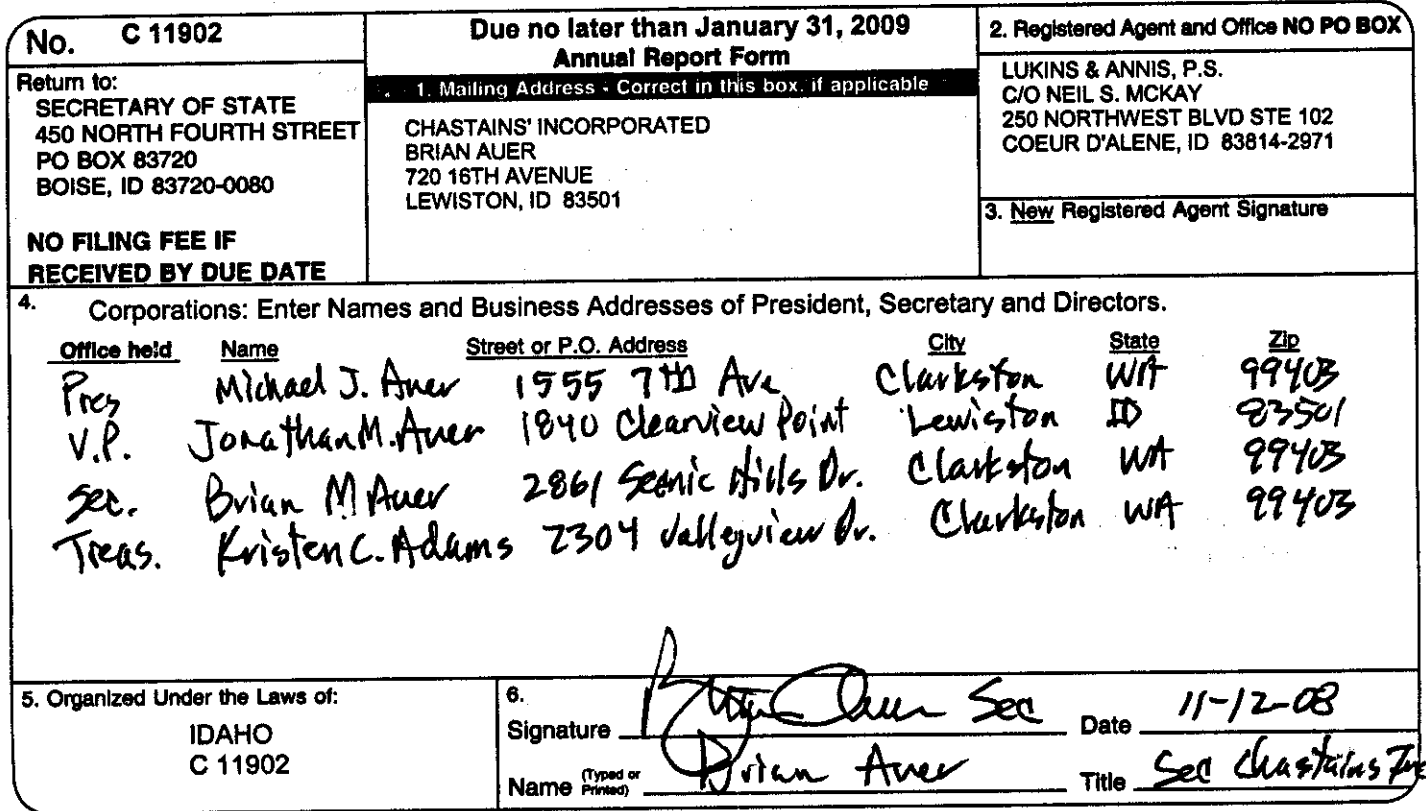 No. C 11902
Return to:
SECRETARY OF STATE
450 NORTH FOURTH STREET
PO BOX 83720
BOISE, ID 83720-0080
NO FILING FEE IF
RECEIVED BY DUE DATE
Due no later than January 31, 2009
Annual Report Form
1. Mailing Address - Correct in this box, if applicable
CHASTAINS' INCORPORATED
BRIAN AUER
720 16TH AVENUE
LEWISTON, ID 83501
2. Registered Agent and Office NO PO BOX
LUKINS & ANNIS, P.S.
C/O NEIL S. MCKAY
250 NORTHWEST BLVD STE 102
COEUR D'ALENE, ID 83814-2971
3. New Registered Agent Signature
4. Corporations: Enter Names and Business Addresses of President, Secretary and Directors.
Office held Name Street or P.O. Address City State Zip
Pres Michael J. Auer 1555 7TH Ave Clarkston WA 99403
V.P. Jonathan M. Auer 1840 Clearview Point Lewiston ID 83501
Sec. Brian M Auer 2861 Scenic Hills Dr. Clarkston WA 99403
Treas. Kristen C. Adams 2304 Valleyview Dr. Clarkston WA 99403
5. Organized Under the Laws of:
IDAHO
C 11902
6.
Signature Brian Auer Sec Date 11-12-08
Name (Typed or Printed) Brian Auer Title Sec Chastains Inc